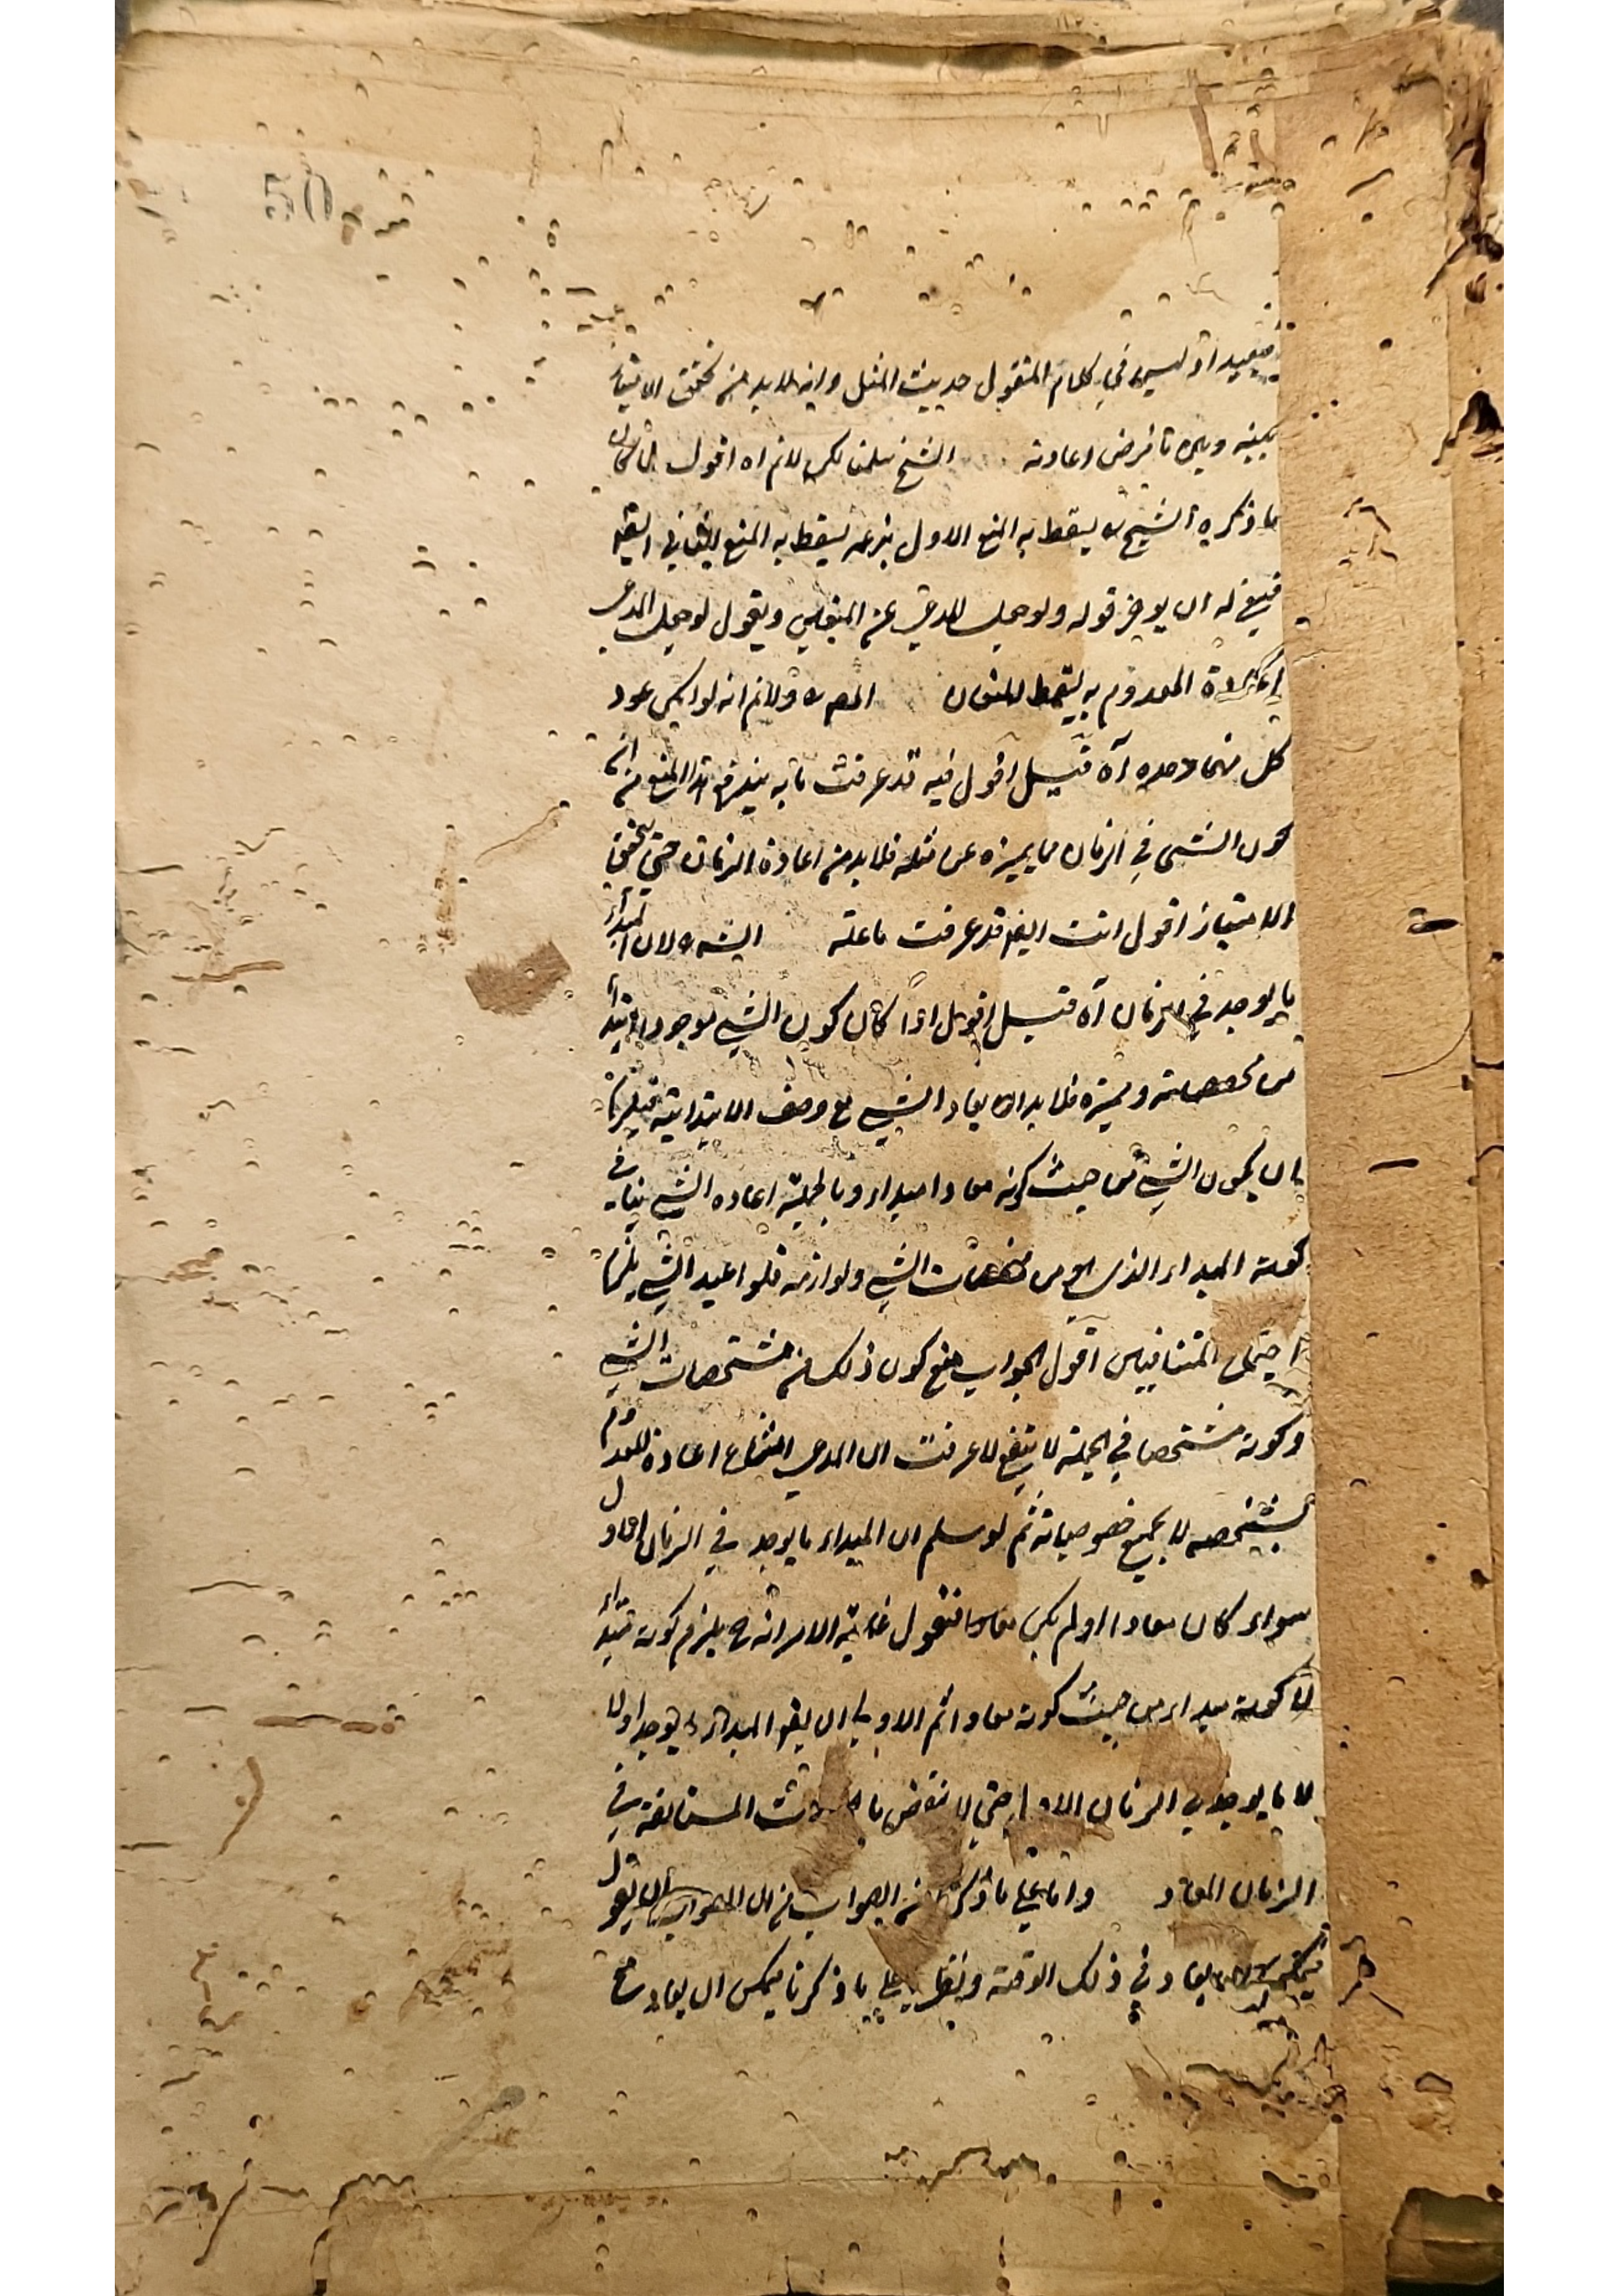 50
فبعيد اذ ليس في كلام المنقول حديث المثل وانه لا بد من تحقق الامتياز
بينه وبين ما فرض اعادته الشخ سلمنا لكن لانم اه اقول
ما ذكره الشيخ يسقط به المنع الاول بزعمه يسقط به المنع الثاني ايضا
فينبغي له ان يوخر قوله ولو حمل المدعى عن المنعين ويقول لو حمل المدعى
اعادة المعدوم به يسقط المنعان المص ولانم انه لو امكن عود
كل منهما وحده آه قيل اقول فيه قد عرفت ما به يندفع هذا المنع من ان
كون الشئ في الزمان مما يميزه عن مثله فلا بد من اعادة الزمان حتى يتحقق
الامتياز اقول انت ايضا قد عرفت ما عليه الشه لان المبداء
ما يوجد في زمان آه قيل اقول اذا كان كون الشئ موجودا ابتداء
من مخصصاته ومميزه فلا بد ان يعاد الشئ مع وصف الابتدائية فيلزم
ان يكون الشئ من حيث كونه معادا مبداء وبالجملة اعاده الشئ ينافي
كونه المبداء الذي هو من مشخصات الشئ ولوازمه فلو اعيد الشئ يلزم
اجتماع المتنافيين اقول الجواب منع كون ذلك من مشخصات الشئ
وكونه مشخصا في الجملة لا ينفع لما عرفت ان المدعى امتناع اعادة المعدوم
بشخصه لا بجميع خصوصياته ثم لو سلم ان المبداء ما يوجد في الزمان الاول
سواء كان معادا او لم يكن معادا فنقول غاية الامر انه ح يلزم كونه مبداء
لا كونه مبداء من حيث كونه معادا ثم الاولى ان يقر المبداء ما يوجد اولا
لا ما يوجد في الزمان الاول حتى لا ينقض بالحوادث المستانفة في
الزمان المعاد واما على ما ذكره من الجواب من ان الصواب ان يقول
فيمكن ان يعاد في ذلك الوقت ونظيره على ما ذكرنا يمكن ان يعاد مع